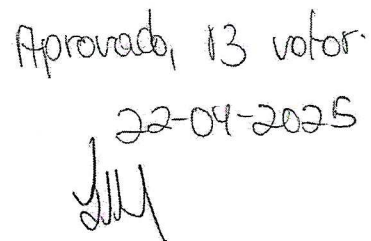 Aprovado, 13 votos.
22-04-2025